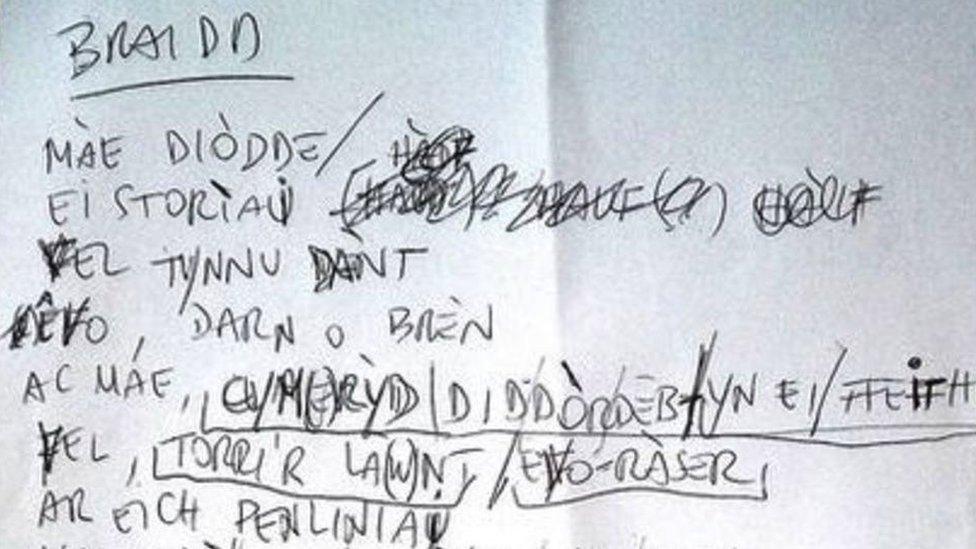 BRAIDD
MÀE DIÒDDE/
EI STORÌAU
VEL TYNNU DÀNT
VO, DARN O BRÈN
AC MÁE, CYM(E)RỲD/DIDDÒRDEB/YN EI/FFEITH
VEL, TORRI'R LA(W)NT/EVO-RÀSER,
AR EICH PENLINIAU